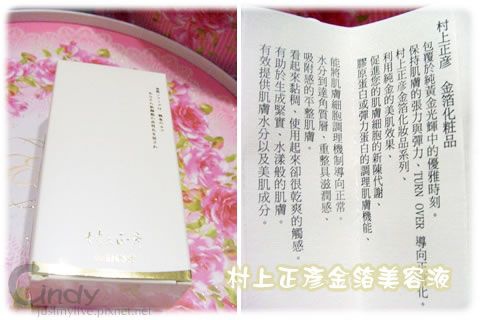 村上正彦　金箔化粧品
包覆於純黃金光輝中的優雅時刻。
保持肌膚的張力與彈力、TURN OVER 導向正常化。
村上正彦金箔化妝品系列、
利用純金的美肌效果、
促進您的肌膚細胞的新陳代謝、
膠原蛋白或彈力蛋白的調理肌膚機能、
能將肌膚細胞調理機制導向正常。
水分到達角質層、重整具滋潤感、
吸附感的平整肌膚。
看起來黏稠、使用起來卻很乾爽的觸感。
有助於生成緊實、水漾般的肌膚。
有效提供肌膚水分以及美肌成分。
村上正彥金箔美容液
Cindy
justmylive.pixnet.net